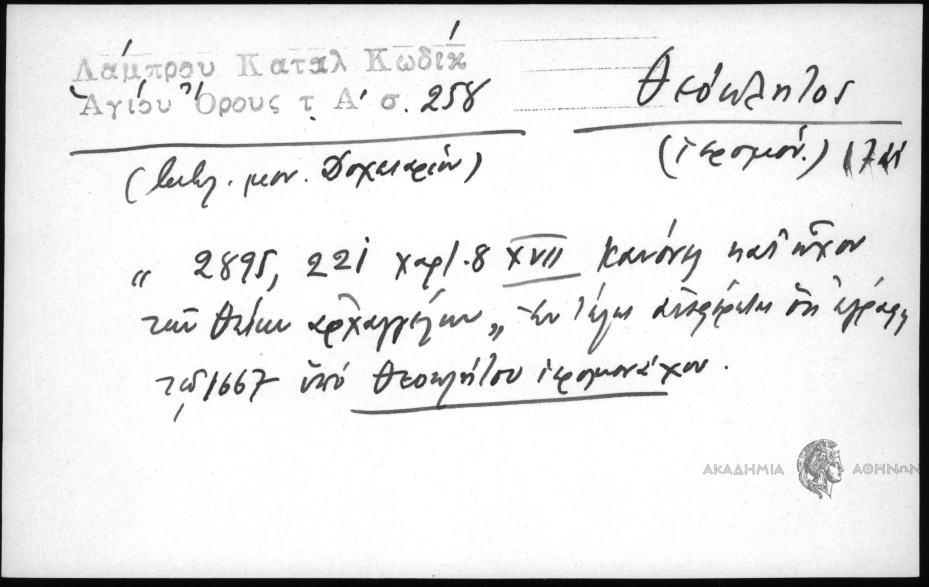 Λάμπρου Καταλ Κωδίκ
Ἁγίου Ὄρους τ. Α' σ. 258
Θεόκλητος
(ἱερομόν.)
(βιβλ. μον. Δοχειαρίου)
„ 2895, 221 χαρτ. 8 XVII Κανόνες κατ' ἦχον
τῶν θείων ἀρχαγγέλων „ Ἐν τέλει ἀναφέρεται ὅτι ἐγράφη
τῷ 1667 ὑπό Θεοκλήτου ἱερομονάχου.
ΑΚΑΔΗΜΙΑ ΑΘΗΝΩΝ